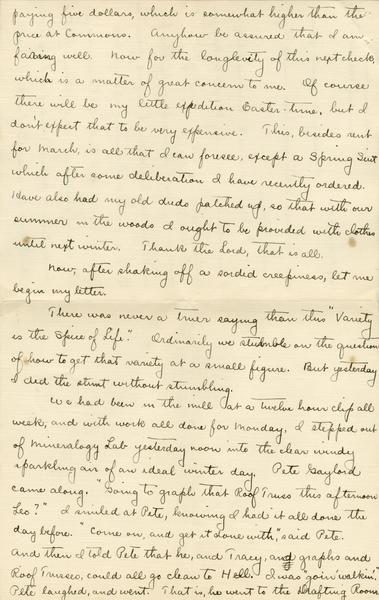 paying five dollars, which is somewhat higher than the
price at Commons. Anyhow be assured that I am
faring well. Now for the longlevity of this next check,
which is a matter of great concern to me. Of course
there will be my little expedition Easter-time, but I
don't expect that to be very expensive. This, besides rent
for March, is all that I can foresee, except a Spring Suit
which after some deliberation I have recently ordered.
Have also had my old duds patched up, so that with our
summer in the woods I ought to be provided with clothes
until next winter. Thank the Lord, that is all.
Now, after shaking off a sordid creepiness, let me
begin my letter.
There was never a truer saying than this "Variety
is the Spice of Life". Ordinarily we stumble on the question
of how to get that variety at a small figure. But yesterday
I did the stunt without stumbling.
We had been in the mill at a twelve hour clip all
week, and with work all done for Monday, I stepped out
of Mineralogy Lab yesterday noon into the clear windy
sparkling air of an ideal winter day. Pete Gaylord
came along. "Going to graph that Roof Truss this afternoon
Leo?" I smiled at Pete, knowing I had it all done the
day before. "Come on, and get it done with," said Pete.
And then I told Pete that he, and Tracy, and graphs and
Roof Trusses, could all go clean to Hell. I was goin' walkin'.
Pete laughed, and went. That is, he went to the Drafting Room